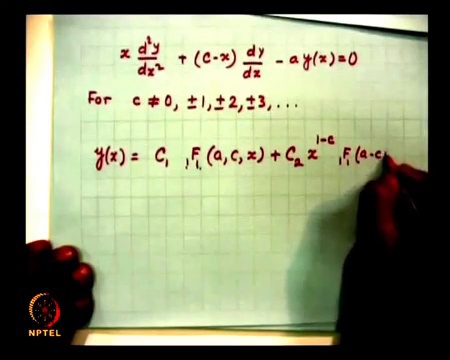 x d²y/dx² + (c-x) dy/dx - a y(x) = 0
For c ≠ 0, ±1, ±2, ±3, ...
y(x) = C₁ ₁F₁ (a, c, x) + C₂ x^{1-c} ₁F₁ (a-c
NPTEL